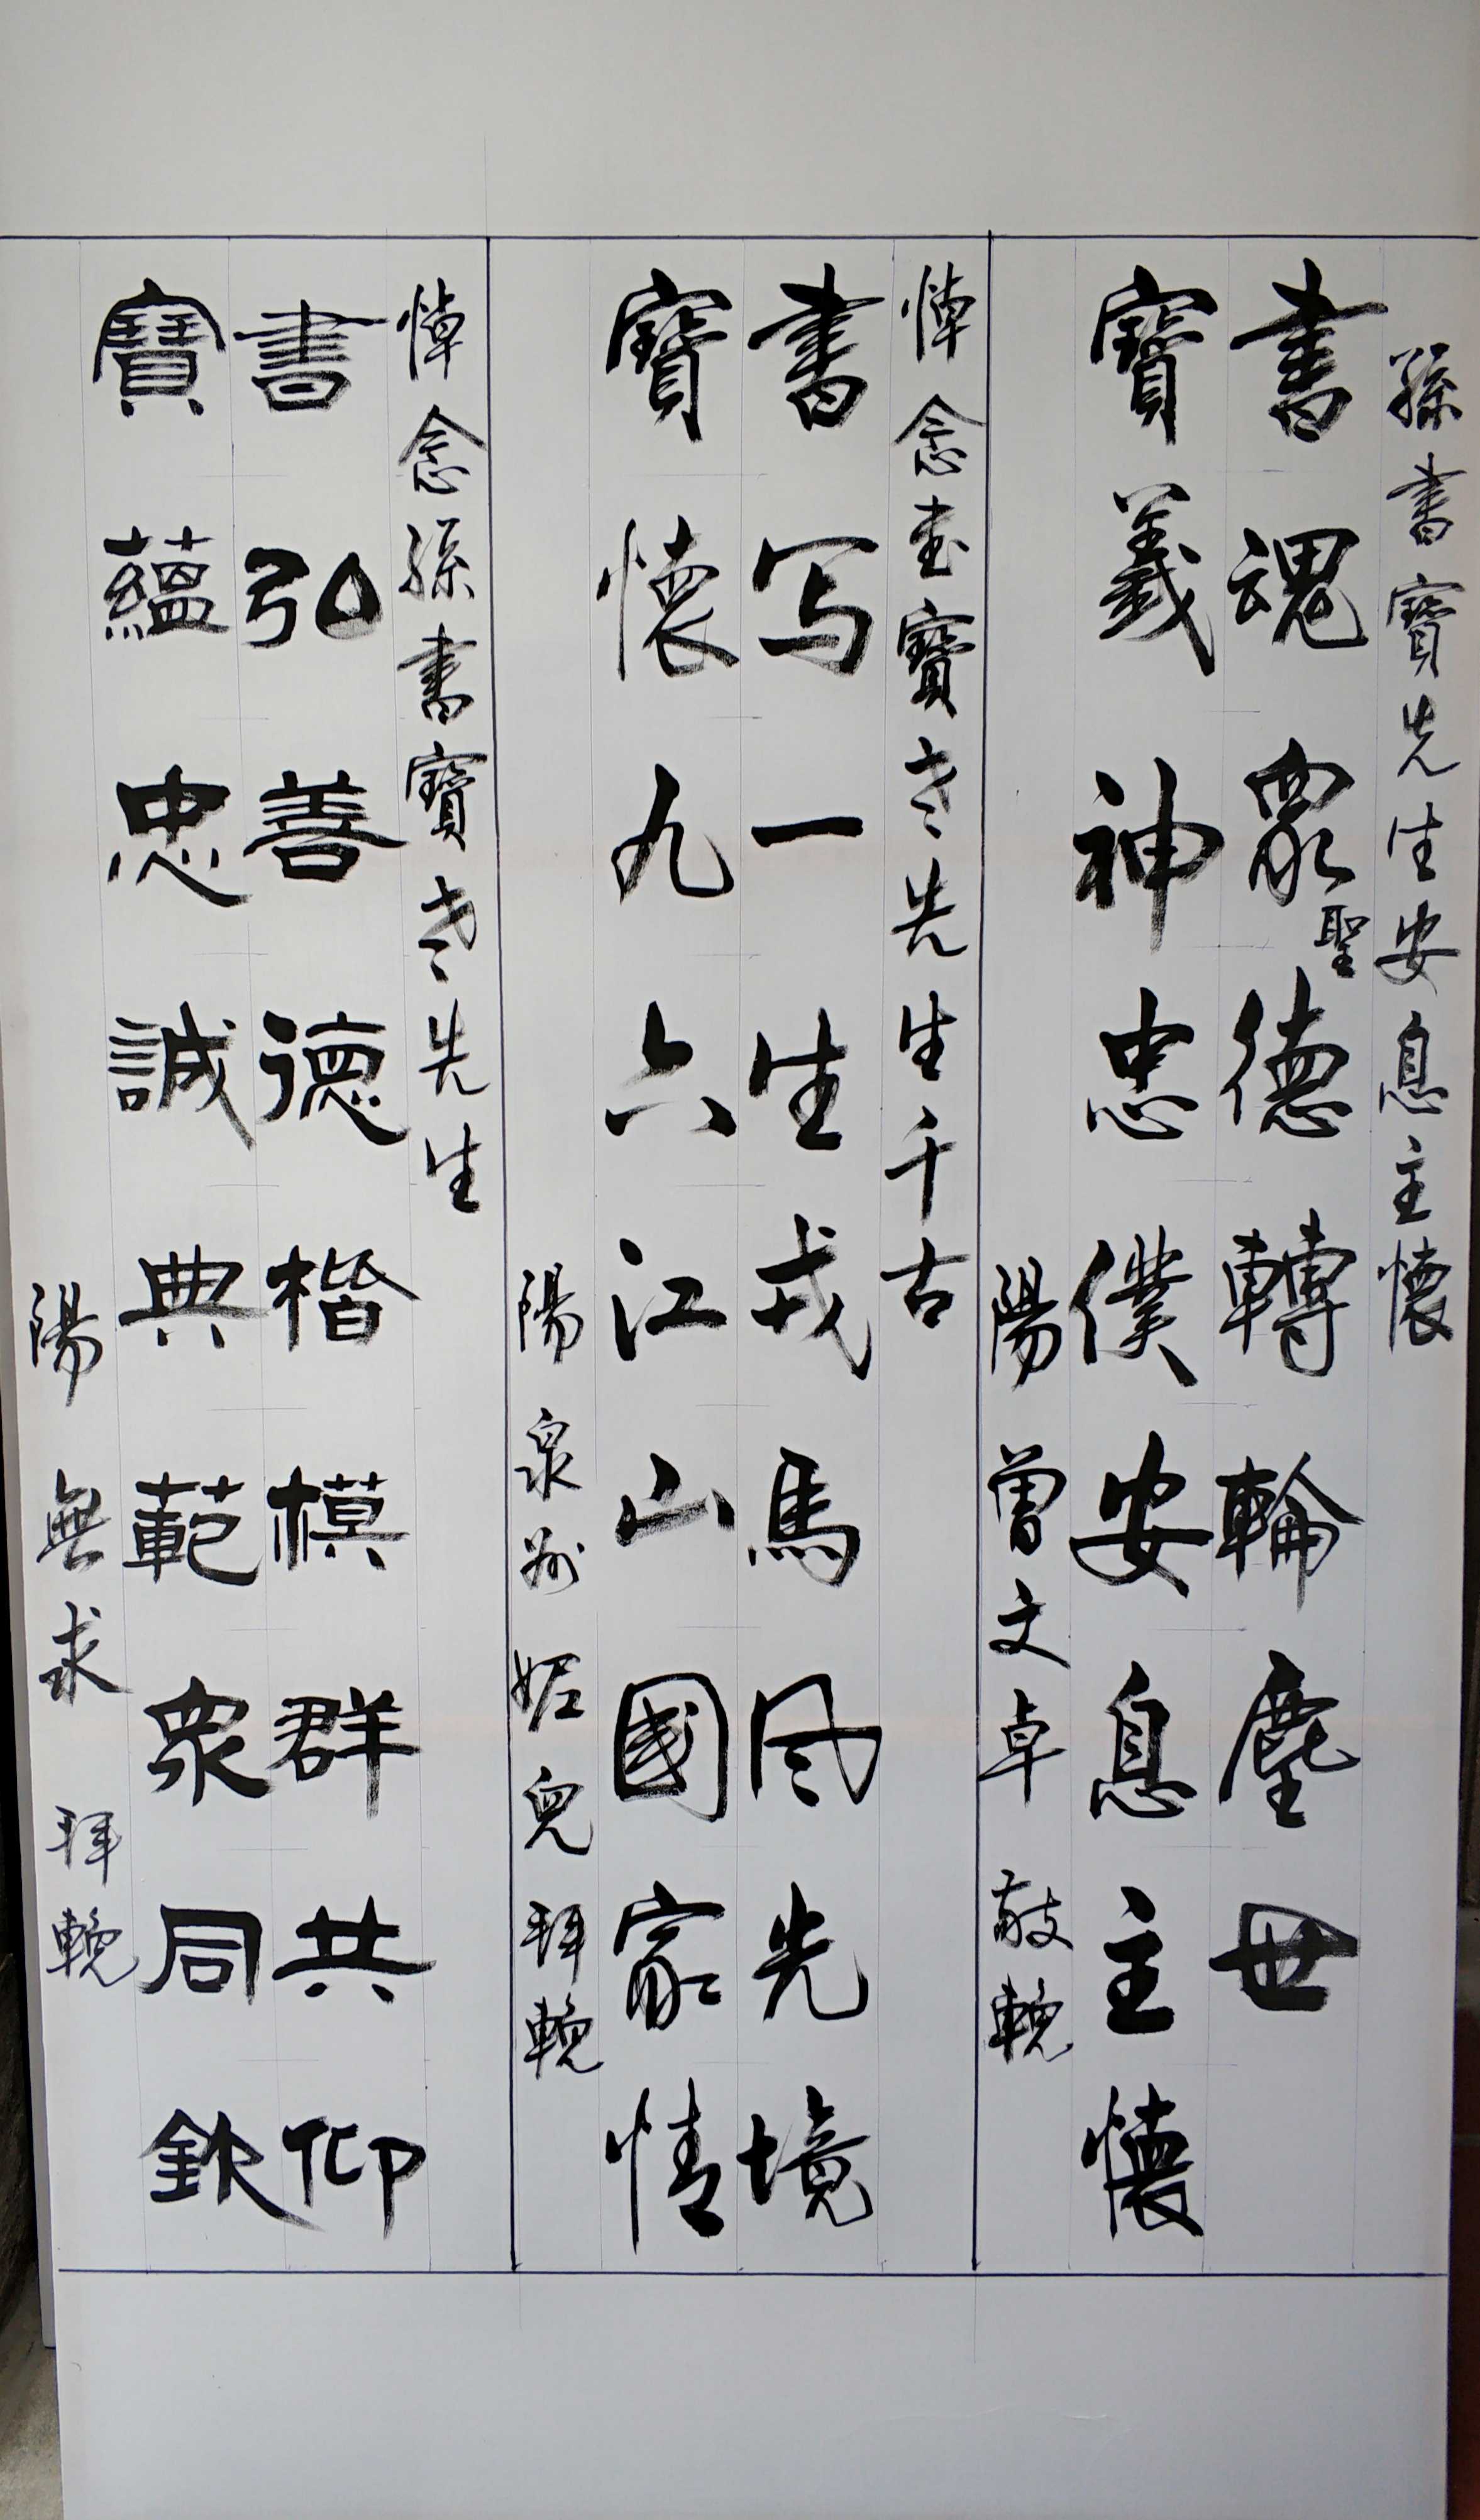 孫書寶先生安息主懷
書魂眾聖德轉輪塵世
寶義神忠僕安息主懷
陽曾文卓敬輓
悼念書寶老先生千古
書写一生戎馬风先境
寶懷九六江山國家情
陽泉 兒拜輓
悼念孫書寶老先生
書弘善德楷模群共仰
寶蘊忠誠典範眾同欽
陽無求拜輓